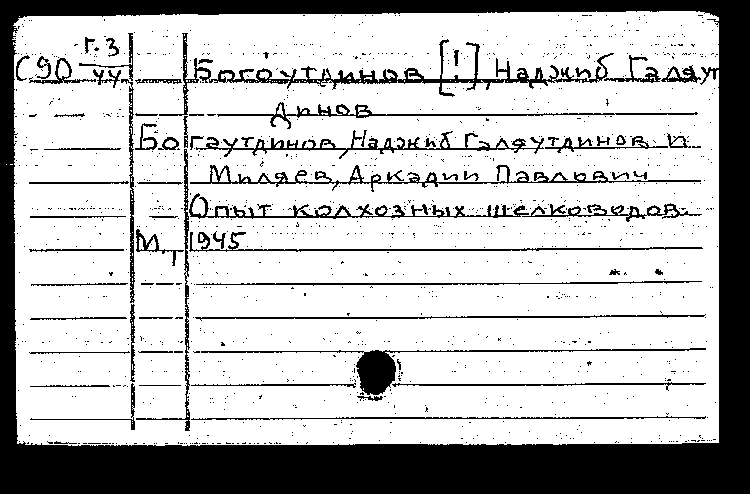 С90 Г.3/44 Богоутдинов [!], Наджиб Галяут
динов
Богаутдинов, Наджиб Галяутдинов и
Миляев, Аркадии Павлович
Опыт колхозных шелководов.
М., 1945